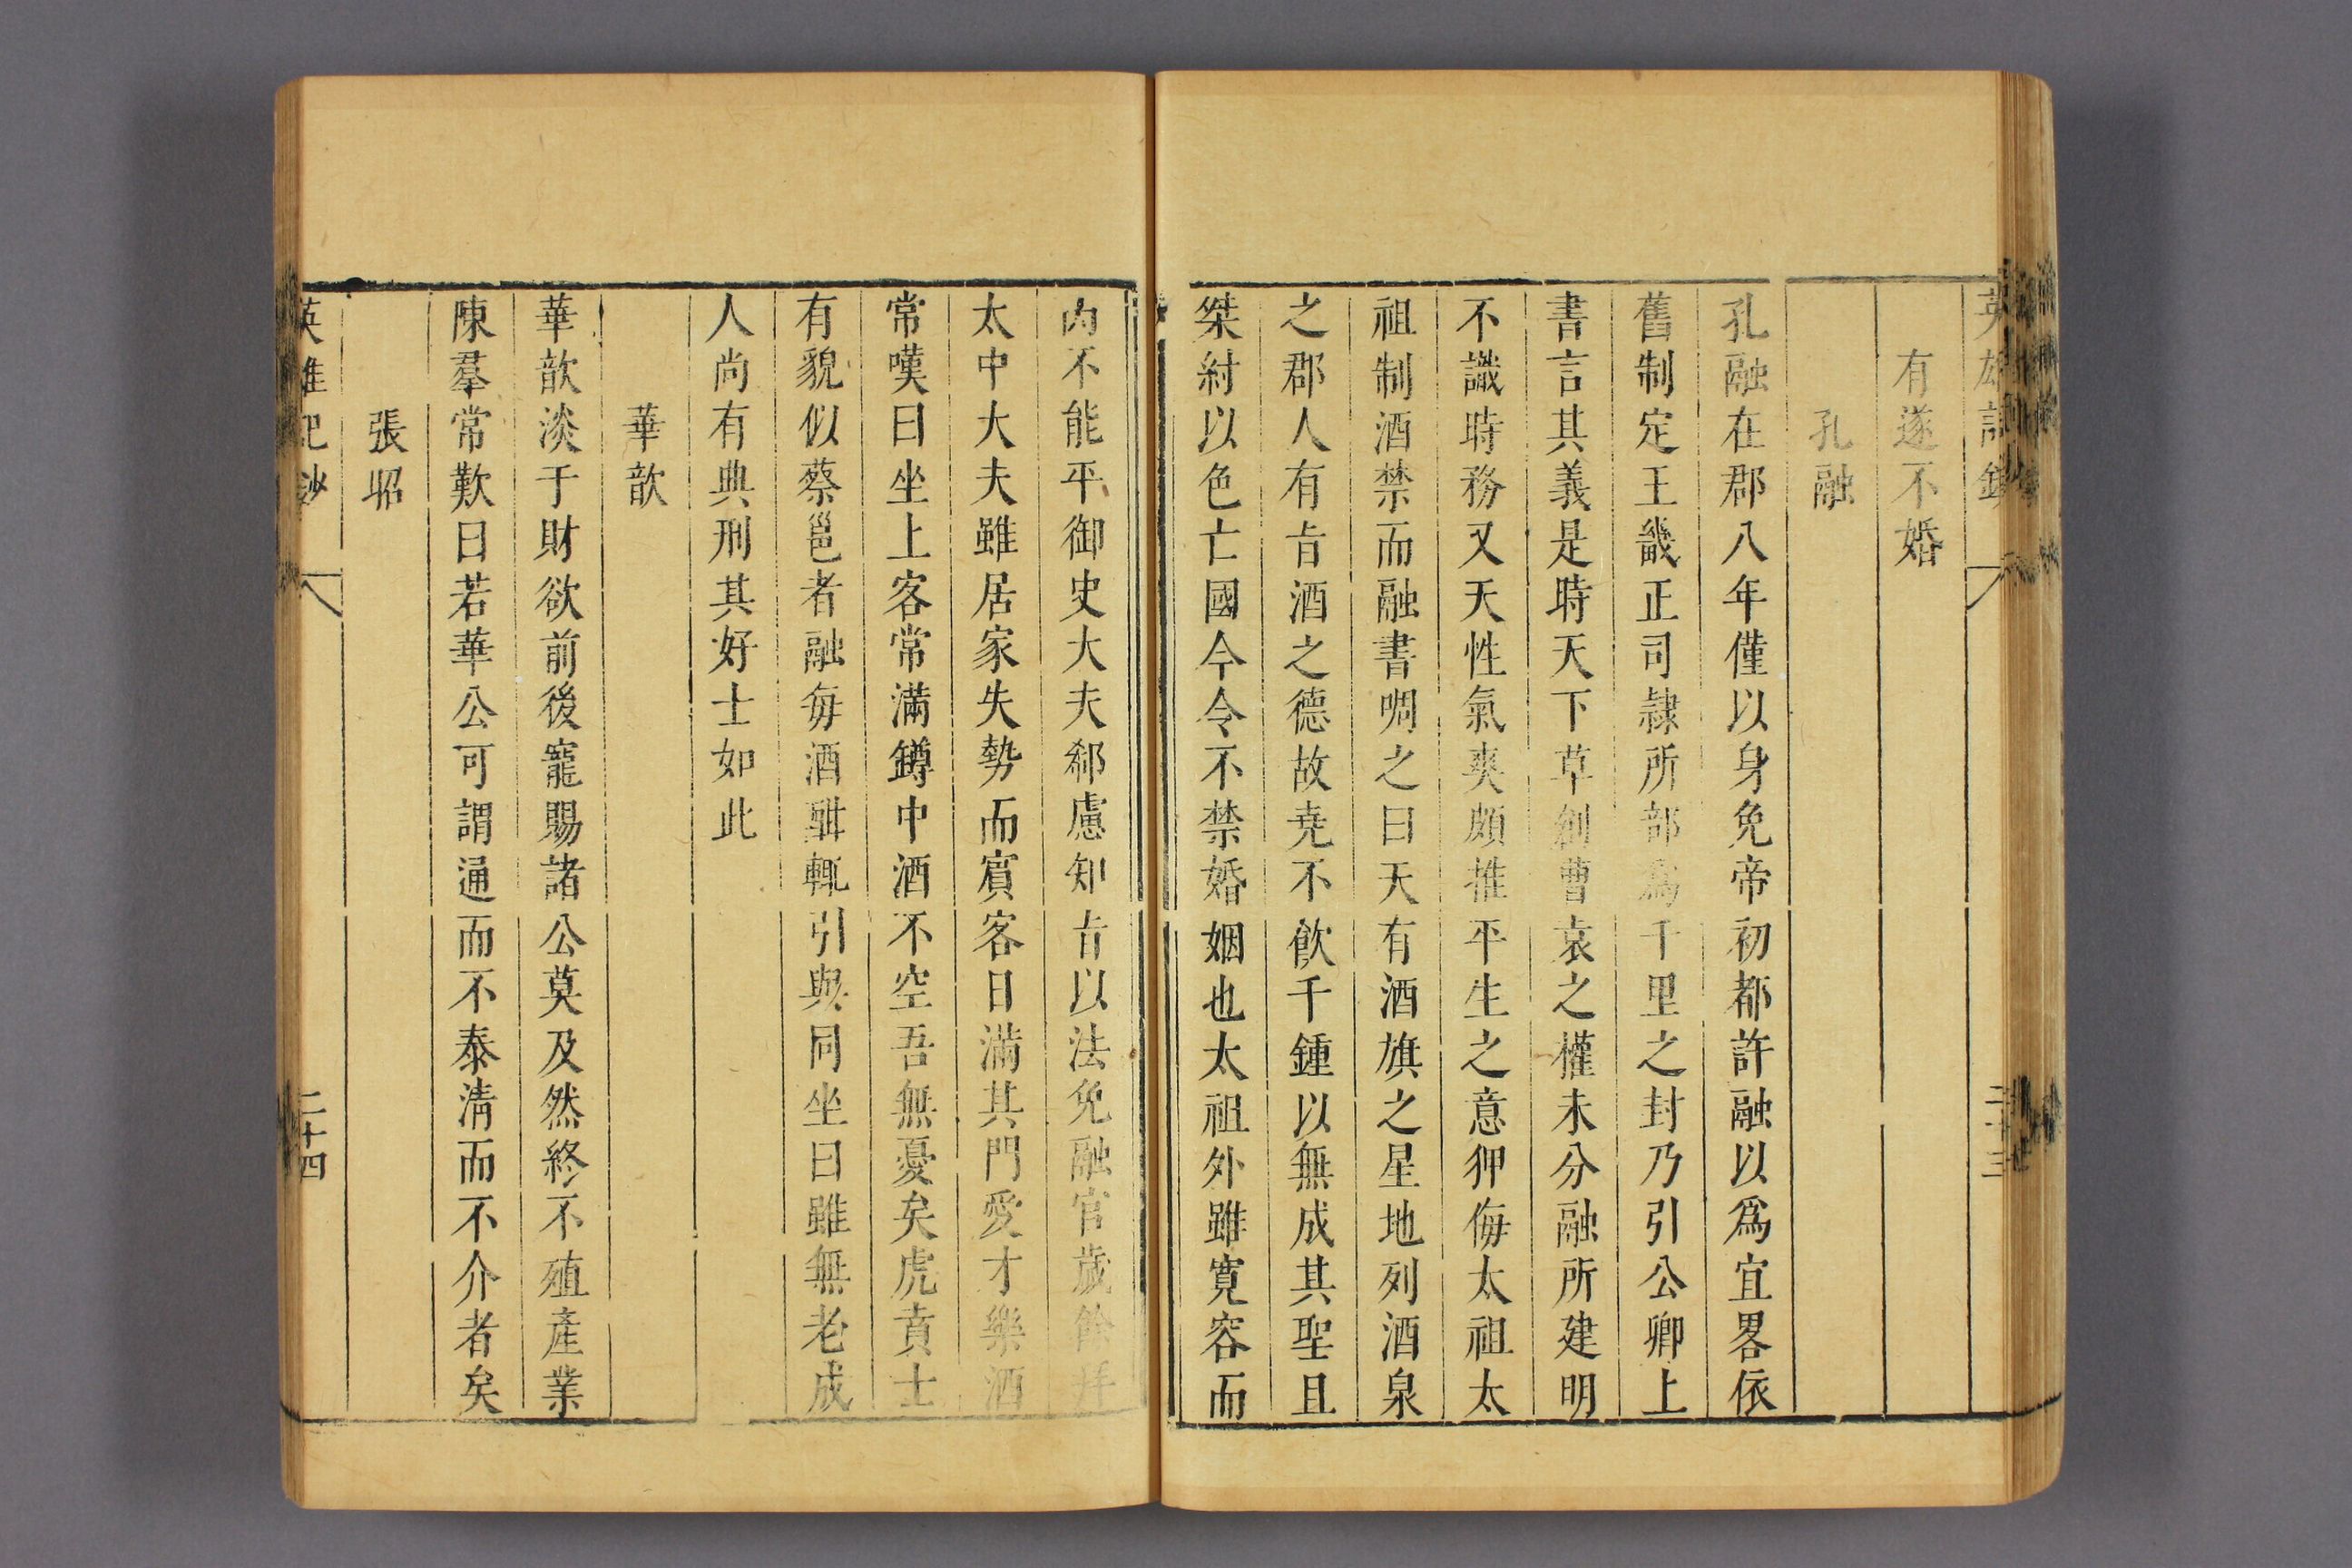 英雄記鈔 二十三
有遂不婚
孔融
孔融在郡八年僅以身免帝初都許融以爲宜畧依
舊制定王畿正司隷所部爲千里之封乃引公卿上
書言其義是時天下草創曹袁之權未分融所建明
不識時務又天性氣爽頗推平生之意狎侮太祖太
祖制酒禁而融書啁之曰天有酒旗之星地列酒泉
之郡人有旨酒之德故堯不飮千鍾以無成其聖且
桀紂以色亡國今令不禁婚姻也太祖外雖寬容而
內不能平御史大夫郗慮知旨以法免融官歲餘拜
太中大夫雖居家失勢而賓客日滿其門愛才樂酒
常嘆曰坐上客常滿鐏中酒不空吾無憂矣虎賁士
有貌似蔡邕者融每酒酣輒引與同坐曰雖無老成
人尚有典刑其好士如此
華歆
華歆淡于財欲前後寵賜諸公莫及然終不殖產業
陳羣常歎曰若華公可謂通而不泰清而不介者矣
張昭
英雄記鈔 二十四